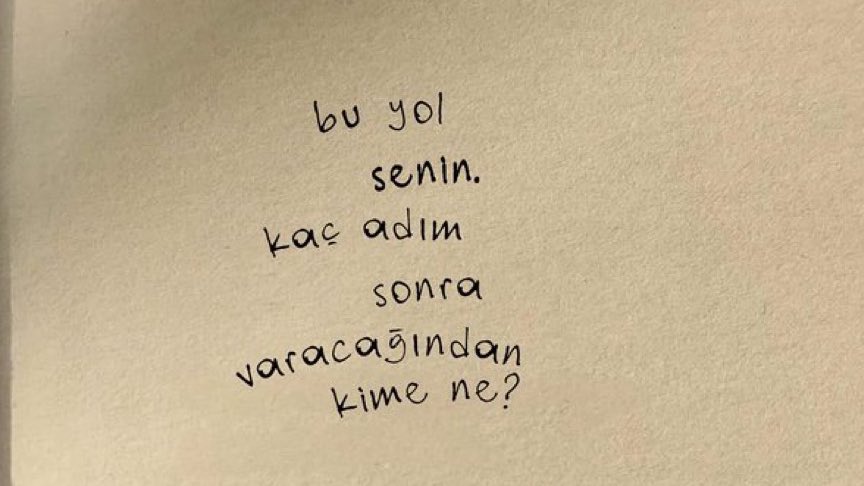 bu yol
senin.
kaç adım
sonra
varacağından
kime ne?